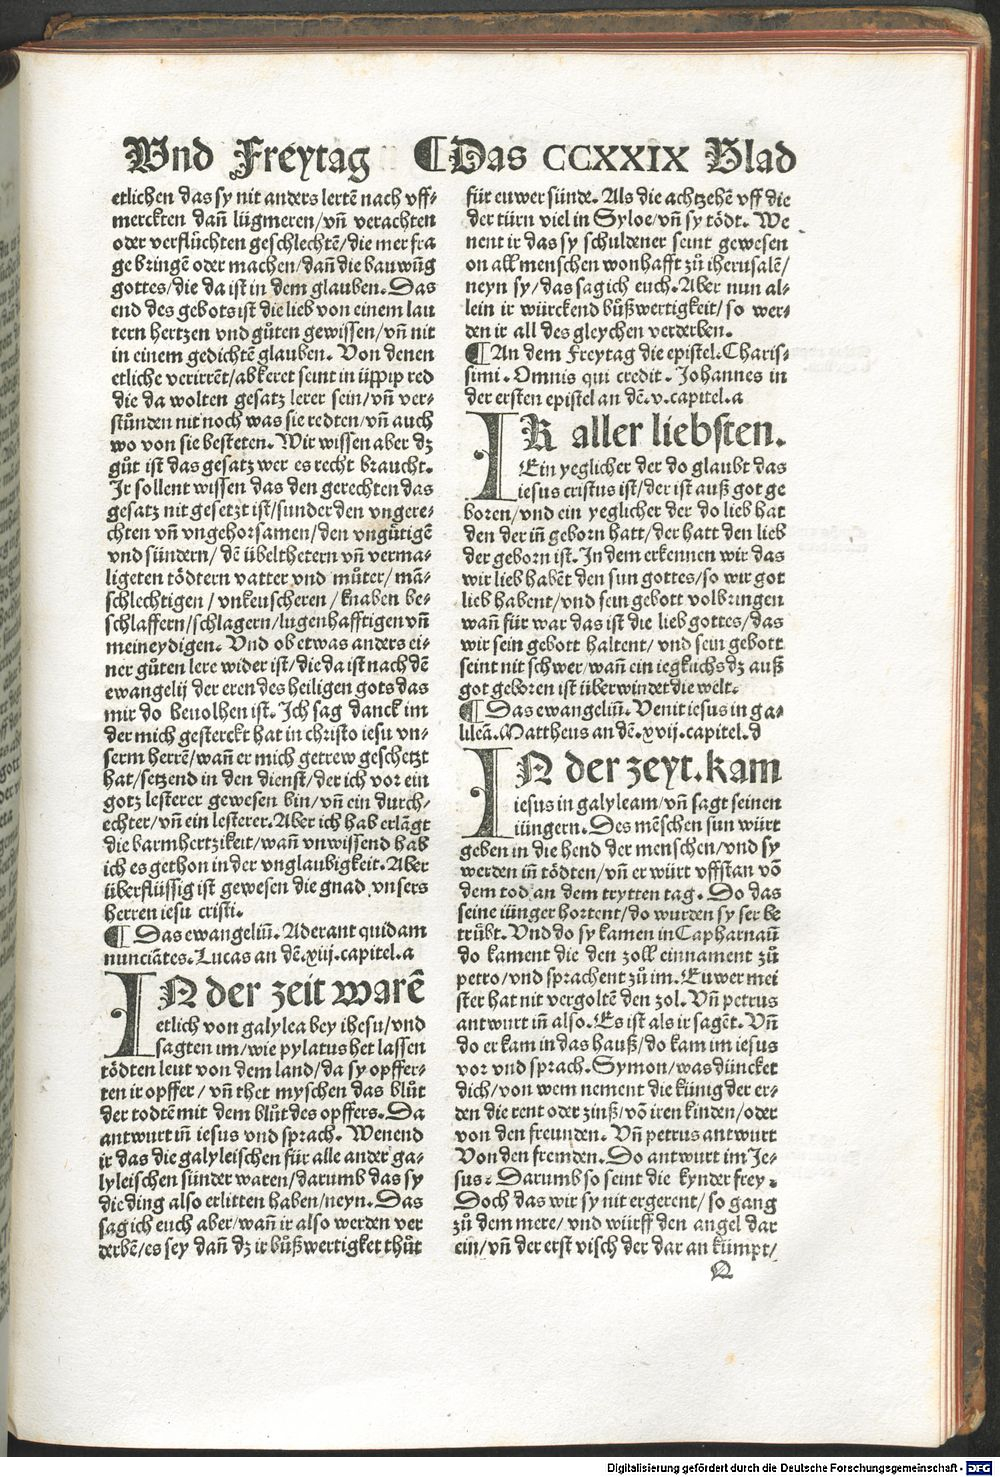 Vnd Freytag ¶Das CCXXIX Blad
etlichen das sy nit anders lertẽ nach vff⸗
merckten dañ lügmeren/vñ verachten
oder verflůchten geschlechtẽ/die mer fra
ge bringẽ oder machen/dañ die bauwũg
gottes/die da ist in dem glauben. Das
end des gebots ist die lieb von einem lau
tern hertzen vnd gůten gewissen/vñ nit
in einem gedichtẽ glauben. Von denen
etliche verirrẽt/abkeret seint in üppip red
die da wolten gesatz lerer sein/vñ ver⸗
stůnden nit noch was sie redten/vñ auch
wo von sie besteten. Wir wissen aber dz
gůt ist das gesatz wer es recht braucht.
Ir sollent wissen das den gerechten das
gesatz nit gesetzt ist/sunder den vngere⸗
chten vñ vngehorsamen/den vngütigẽ
vnd sündern/ dẽ übelthetern vñ verma⸗
ligeten tödtern vatter vnd můter/ mã⸗
schlechtigen/ vnkeuscheren/ knaben be⸗
schlaffern/schlagern/lugenhafftigen vñ
meineydigen. Vnd ob etwas anders ei⸗
ner gůten lere wider ist/die da ist nach dẽ
ewangelij der eren des heiligen gots das
mir do beuolhen ist. Ich sag danck im
der mich gesterckt hat in christo iesu vn⸗
serm herrẽ/wañ er mich getrew geschetzt
hat/setzend in den dienst/der ich vor ein
gotz lesterer gewesen bin/vñ ein durch⸗
echter/vñ ein lesterer. Aber ich hab erlãgt
die barmhertzikeit/wañ vnwissend hab
ich es gethon in der vnglaubigkeit. Aber
überflüssig ist gewesen die gnad vnsers
herren iesu cristi.
¶ Das ewangeliũ. Aderant quidam
nunciãtes. Lucas an dẽ.xiij.capitel.a
IN der zeit warẽ
etlich von galylea bey ihesu/vnd
sagten im/wie pylatus het lassen
tödten leut von dem land/da sy opffer⸗
ten ir opffer/ vñ thet myschen das blůt
der todtẽ mit dem blůt des opffers. Da
antwurt iñ iesus vnd sprach. Wenend
ir das die galyleischen für alle ander ga⸗
lyleischen sünder waren/darumb das sy
die ding also erlitten haben/neyn. Das
sag ich euch aber/wañ ir also werden ver
derbẽ/es sey dañ dz ir bůßwertigket thůt
für euwer sünde. Als die achtzehẽ vff die
der türn viel in Syloe/vñ sy tödt. We
nent ir das sy schuldener seint gewesen
on all menschen wonhafft zů iherusalẽ/
neyn sy/das sag ich euch. Aber nun al⸗
lein ir würckend bůßwertigkeit/so wer⸗
den ir all des gleychen verderben.
¶An dem Freytag die epistel. Charis⸗
simi. Omnis qui credit. Johannes in
der ersten epistel an dẽ.v.capitel.a
IR aller liebsten.
Ein yeglicher der do glaubt das
iesus cristus ist/der ist auß got ge
boren/vnd ein yeglicher der do lieb hat
den der iñ geborn hatt/der hatt den lieb
der geborn ist. In dem erkennen wir das
wir lieb habẽt den sun gottes/so wir got
lieb habent/vnd sein gebott volbringen
wañ für war das ist die lieb gottes/das
wir sein gebott haltent/ vnd sein gebott
seint nit schwer/wañ ein iegkuchs dz auß
got geboren ist überwindet die welt.
¶ Das ewangeliũ. Venit iesus in ga⸗
lileã. Mattheus an dẽ.xvij.capitel.d
IN der zeyt.kam
iesus in galyleam/vñ sagt seinen
iüngern. Des mẽschen sun würt
geben in die hend der menschen/vnd sy
werden iñ tödten/vñ er würt vffstan võ
dem tod an dem trytten tag. Do das
seine iünger hortent/do wurden sy ser be
trůbt. Vnd do sy kamen in Capharnaũ
do kament die den zoll einnament zů
petro/vnd sprachent zů im. Euwer mei
ster hat nit vergoltẽ den zol. Vñ petrus
antwurt iñ also. Es ist als ir sagẽt. Vñ
do er kam in das hauß/do kam im iesus
vor vnd sprach. Symon/was düncket
dich/von wem nement die künig der er⸗
den die rent oder zinß/võ iren kinden/oder
von den freunden. Vñ petrus antwurt
Von den fremden. Do antwurt im Je⸗
sus. Darumb so seint die kynder frey.
Doch das wir sy nit ergerent/ so gang
zů dem mere/ vnd würff den angel dar
ein/vñ der erst visch der dar an kümpt/
Q
Digitalisierung gefördert durch die Deutsche Forschungsgemeinschaft - DFG